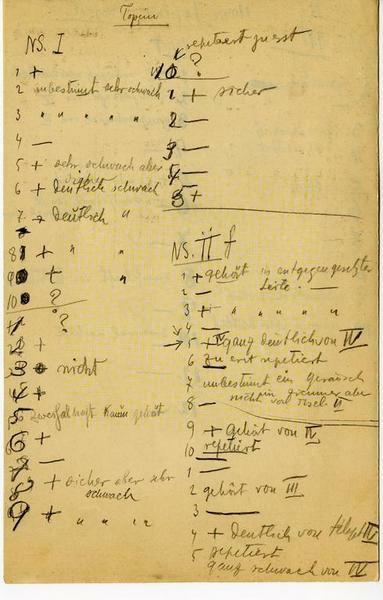 NS. I
1 +
2 unbestimmt sehr schwach
3 " " " "
4 —
5 + sehr schwach aber
6 + deutlich schwach
7 + deutlich "
8 + " "
9 + "
10 ?
1 ?
2 +
3 nicht
4
5 zweifelhaft kaum gehört
6 +
7 —
8 + sicher aber sehr
schwach
9 + " " "
repetiert zuerst
10 ?
1 + sicher
2 —
3 —
4 —
5 +
NS. II f
1 + gehört in entgegengesetzter
Seite. —
2 —
3 + " " " "
4 —
5 + IV ganz deutlich von IV
6 zuerst repetiert
7 unbestimmt ein Geräusch
nicht im Zimmer aber
von II
8 —
9 + gehört von IV
10 repetiert
1 —
2 gehört von III
3 —
4 + deutlich von IV
5 repetiert
ganz schwach von IV